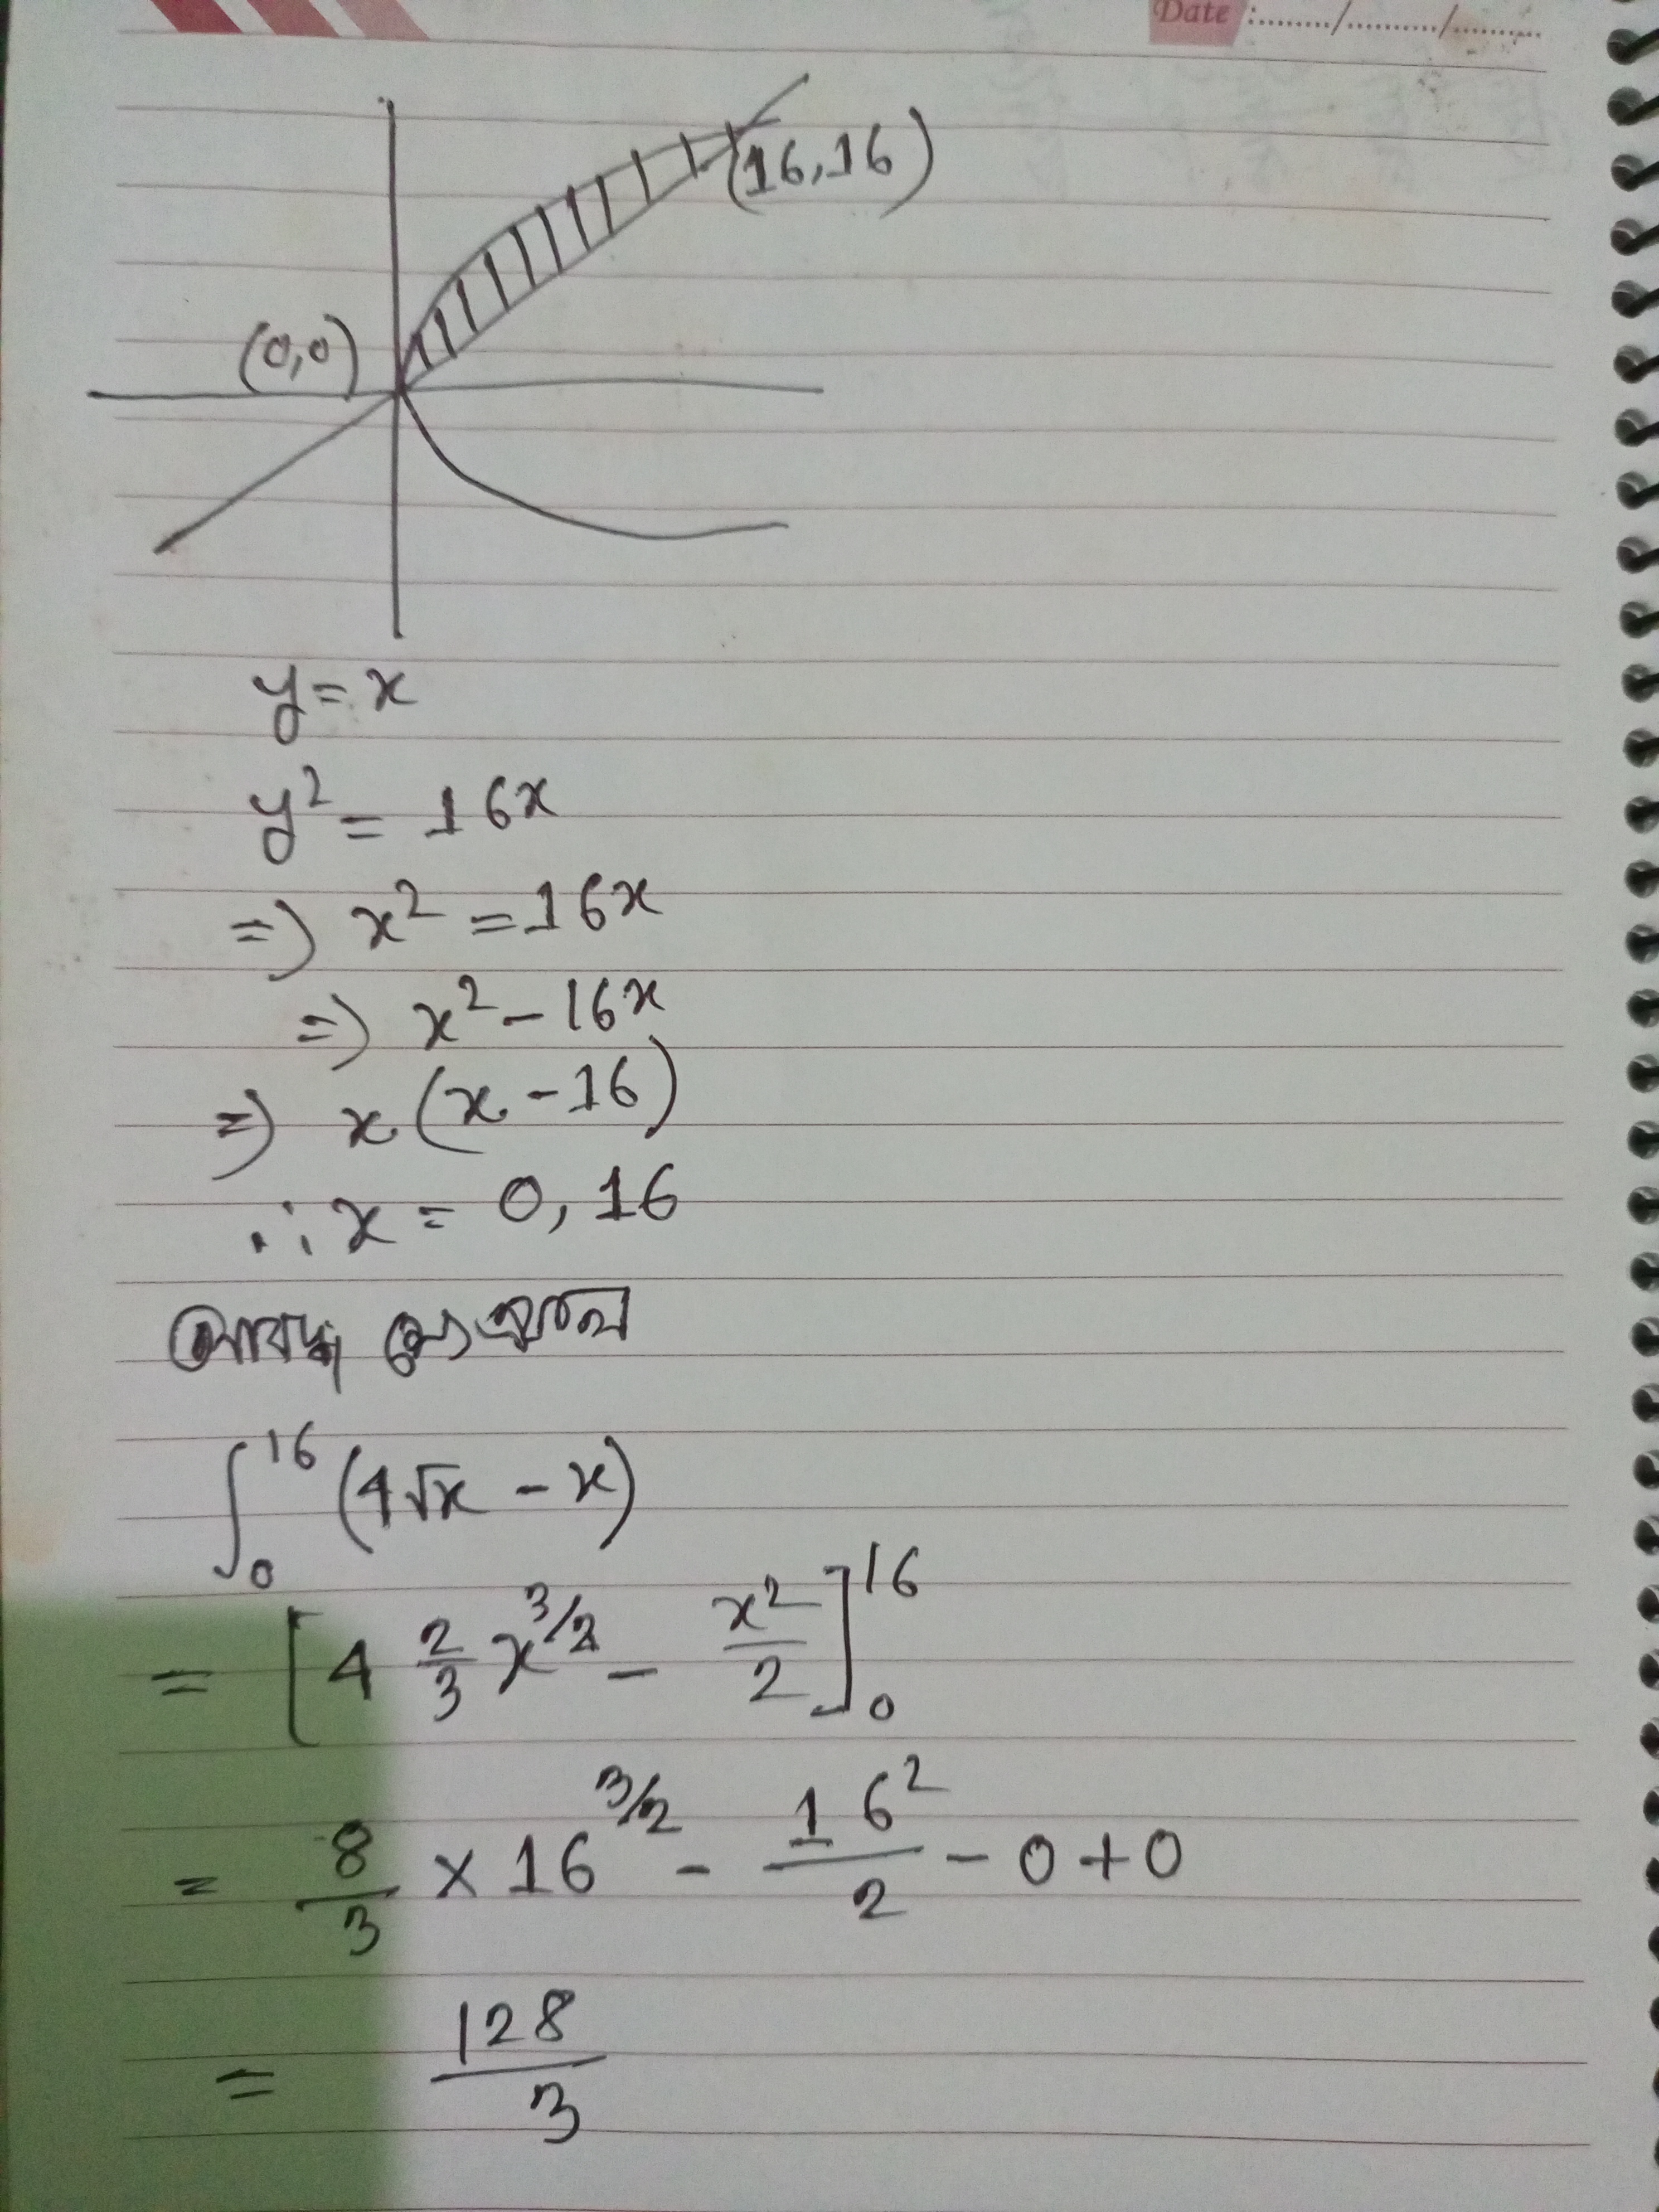 Date :......../........../..........
(16,16)
(0,0)
y = x
y² = 16x
=) x² = 16x
=) x² - 16x
=) x (x - 16)
∴ x = 0, 16
আবদ্ধ ক্ষেত্রফল
∫₀¹⁶ (4√x - x)
= [4 2/3 x^3/2 - x²/2]₀¹⁶
= 8/3 × 16^3/2 - 16²/2 - 0 + 0
= 128/3